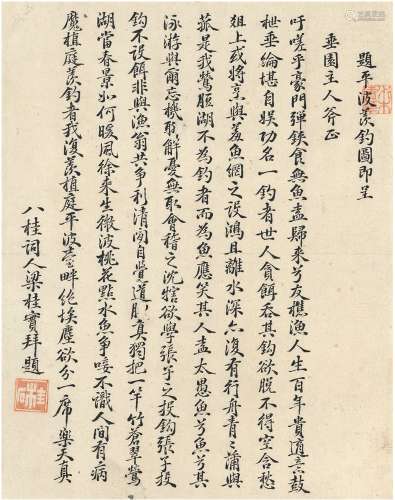 題平波羨釣圖即呈
垂園主人斧正
吁嗟乎豪門彈鋏食無魚盍歸來兮友樵漁人生百年貴適意鼓
枻垂綸堪自娛功名一釣者世人貪餌吞其鈎欲脫不得空合愁
俎上或將烹與羞魚網之設鴻且離水深亦復有行舟青青蒲與
菰是我鶯脰湖不為釣者而為魚應笑其人盍太愚魚兮魚兮其
泳游與爾忘機聊解憂無取會稽之沈犗欲學張子之投鈎張子投
鈎不設餌非與漁翁共爭利清閒自覺道腴真獨把一竿竹蒼翠鶯
湖當春景如何暖風徐來生微波桃花點水魚爭唼不識人間有病
魔植庭羨釣者我復羨植庭平波臺畔絕埃塵欲分一席樂天真
八桂詞人梁桂實拜題